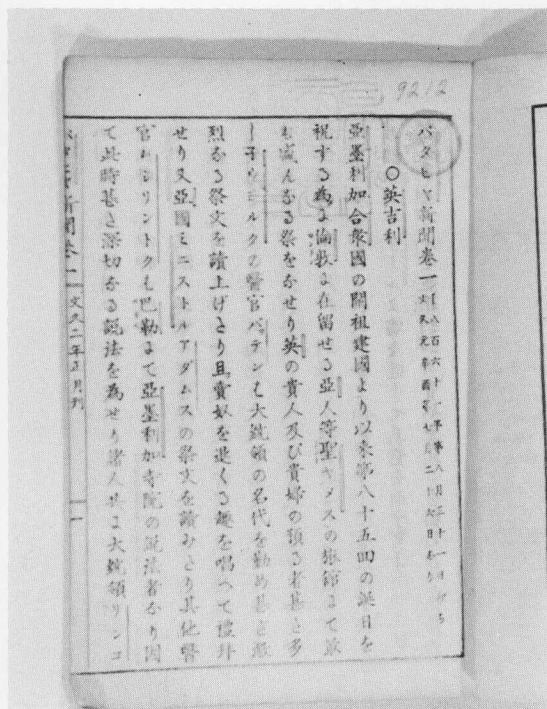 9212
バタヒヤ新聞卷一
千八百六十一年第八月三十一日
文久元辛酉年七月二十六日
〇英吉利
亞墨利加合衆國の開祖建國より以來第八十五回の誕日を
祝する為よ倫敦よ在留せる亞人等聖ヤメスの旅館よて
も盛んなる祭をなせり英の貴人及び貴婦の頂る者甚と多
醫官パテンも大統領の名代を勤め甚と
烈なる祭文を讀上げとり且賣奴を退くる趣を唱へて禮拜
せり又亞國ミニストルアダムスの祭文を讀みとり其他醫
官 も巴勒よて亞墨利加寺院の説法者なり因
て此時甚と深切なる説法を為せり諸人共よ大統領リンコ
新聞卷一 文久二年正月刊 一